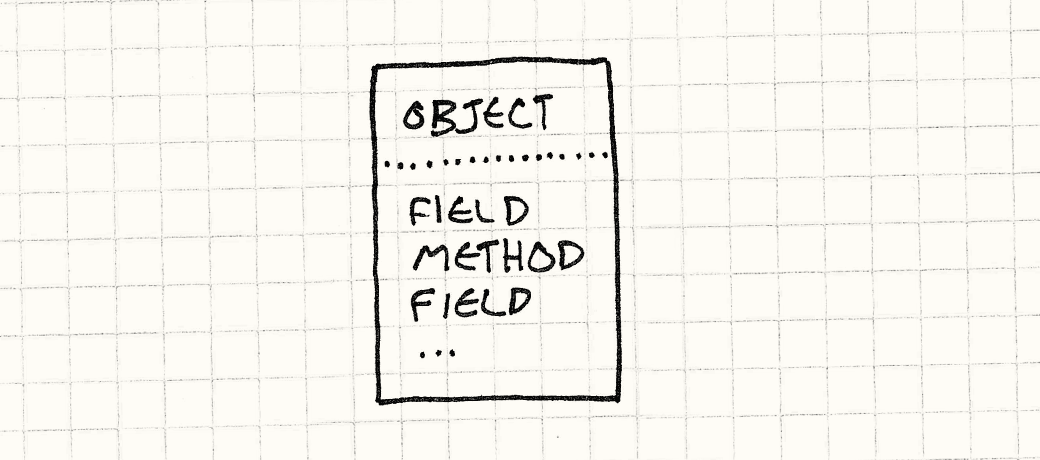 OBJECT
FIELD
METHOD
FIELD
...